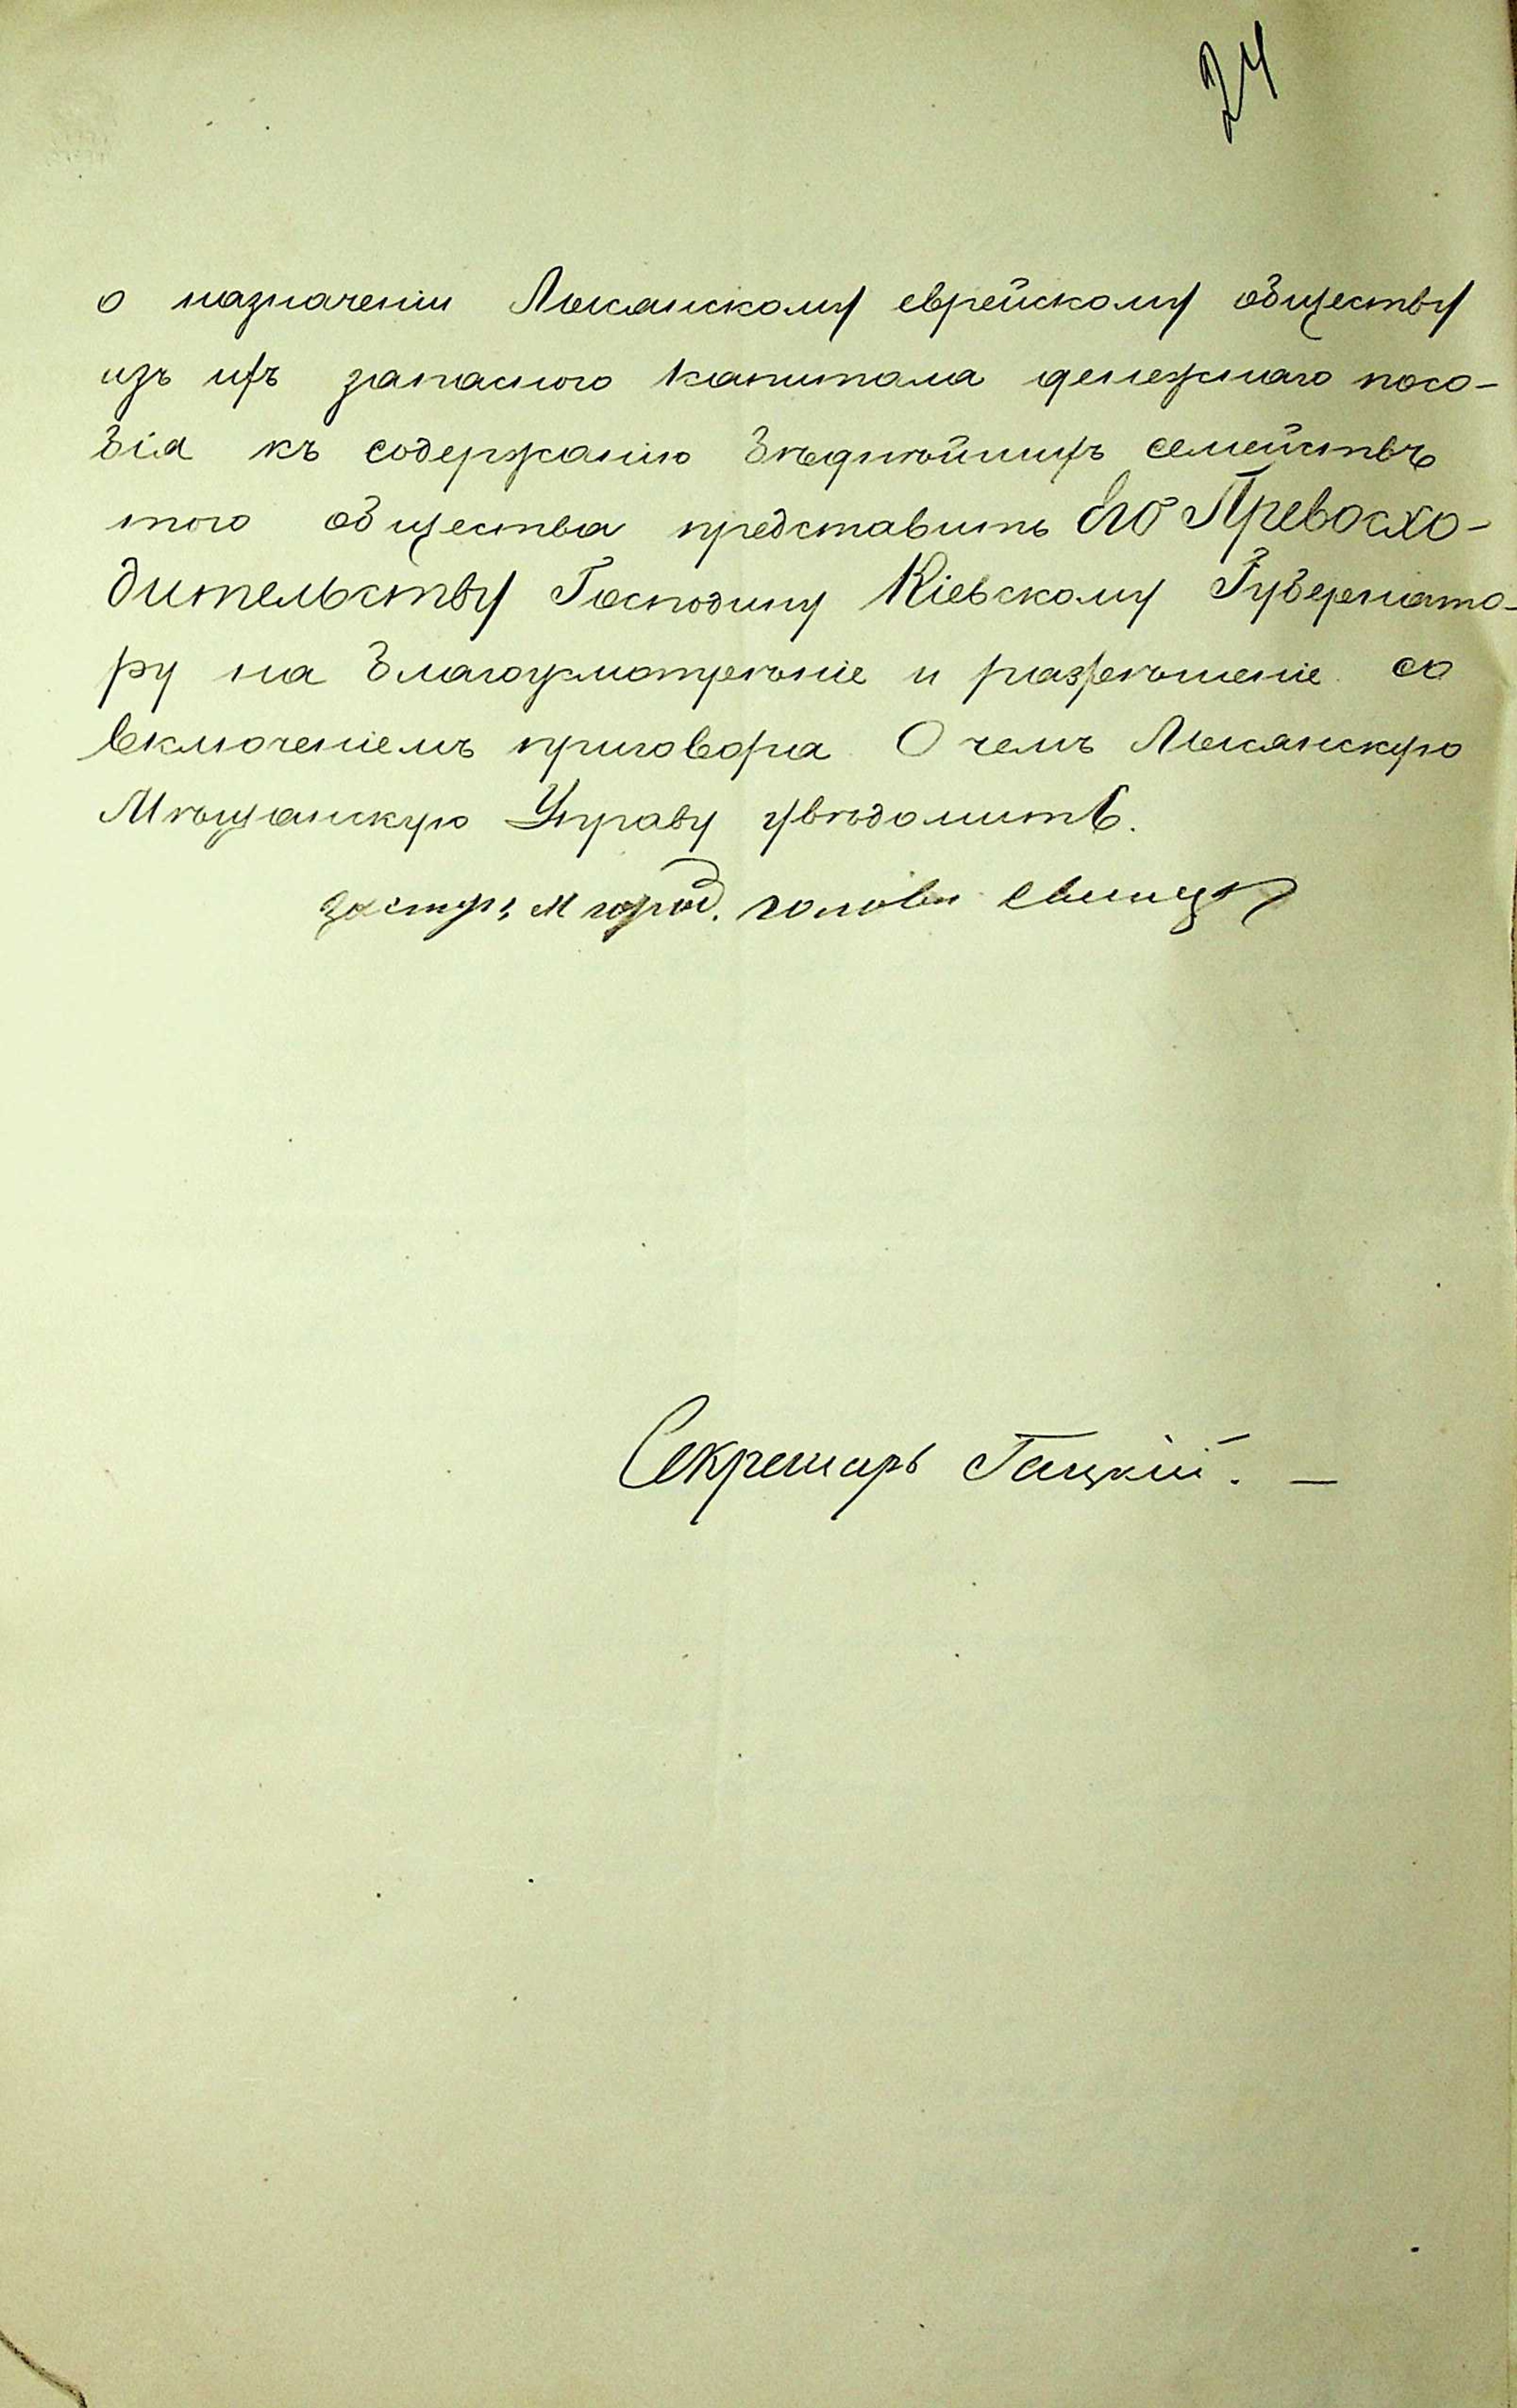 24
о назначеніи Лысянскому еврейскому обществу
изъ ихъ запасного капитала денежнаго посо-
бія къ содержанію бѣднѣйшихъ семействъ
того общества представить Его Превосхо-
дительству Господину Кіевскому Губернато-
ру на благоусмотрѣніе и разрѣшеніе со
включеніемъ приговора. О чемъ Лысянскую
Мѣщанскую Управу увѣдомить.
город. головы
Секретарь Гацкій. —